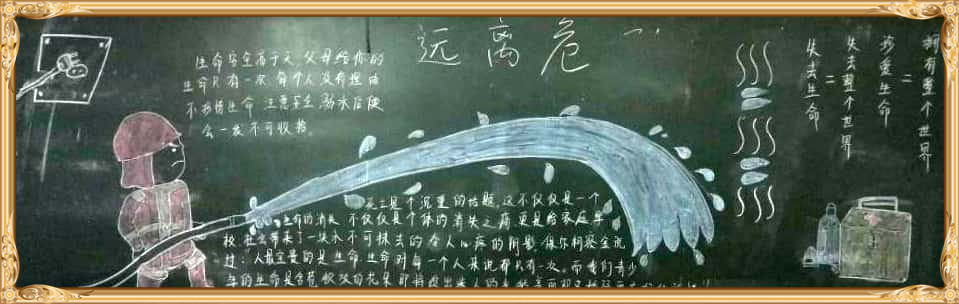 远离危
生命安全高于天,父母给你的
生命只有一次,每个人没有理由
不珍惜生命,注意安全,溺水后便
会一发不可收拾。
拥有整个世界
=
珍爱生命
失去整个世界
=
失去生命
是个沉重的话题,这不仅仅是一个
的消失,不仅仅是个体的消失之痛,更是给家庭、学
校、社会带来了一块永不可抹去的令人心疼的阴影,保尔柯察金说
过:人最宝贵的是生命,生命对每一个人来说都只有一次。而我们青少
年的生命是含苞欲放的花朵